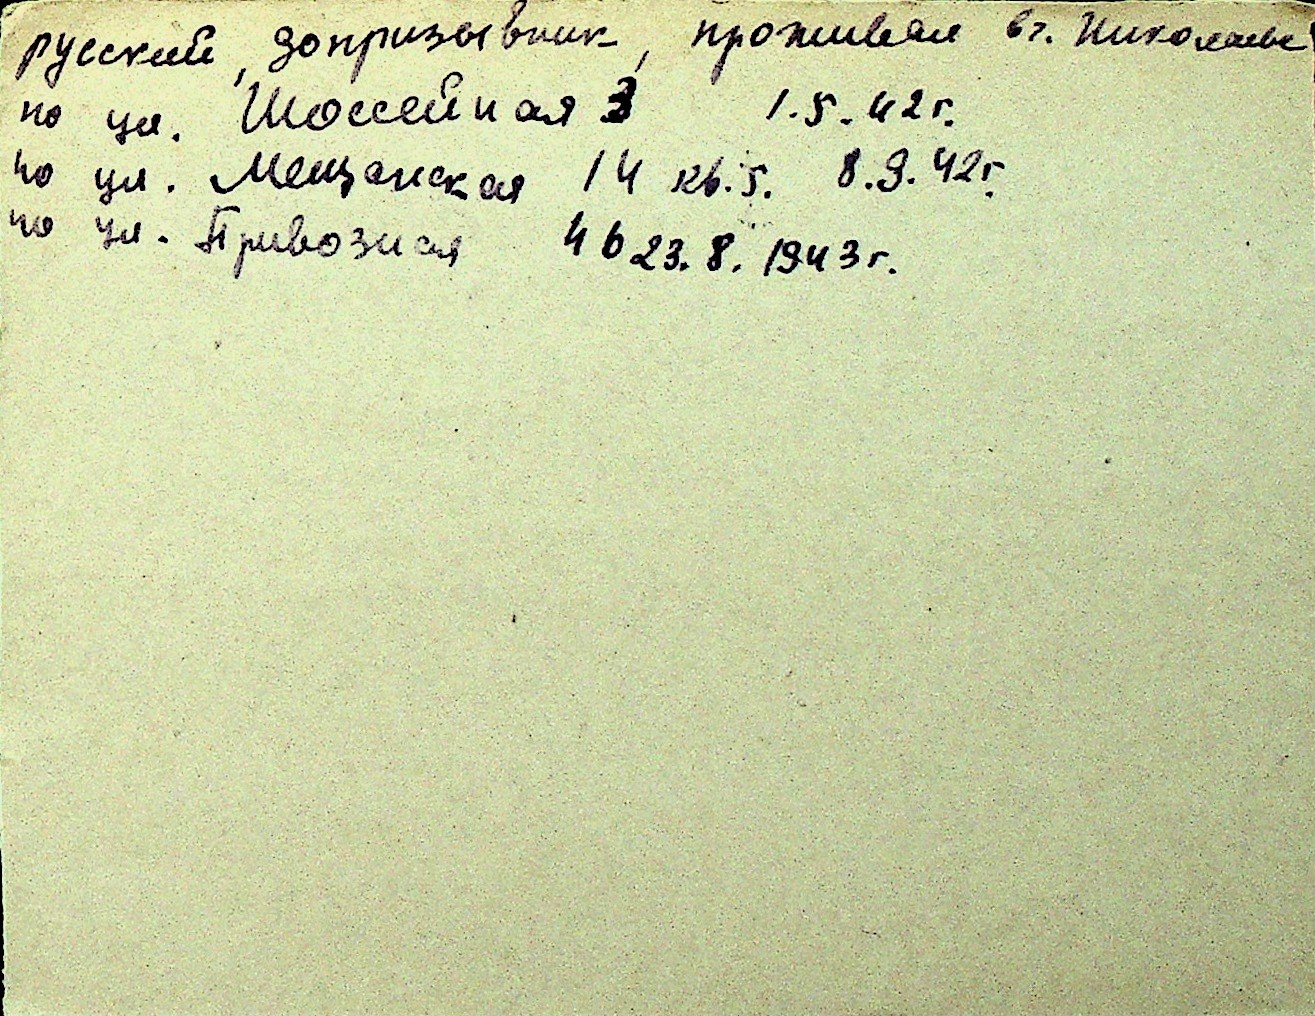 русский, допризывник, проживал в г. Николаеве
по ул. Шоссейная 3 1.5.42г.
по ул. Мещанская 14 кв.5. 8.9.42г.
по ул. Привозная 46 23.8.1943г.